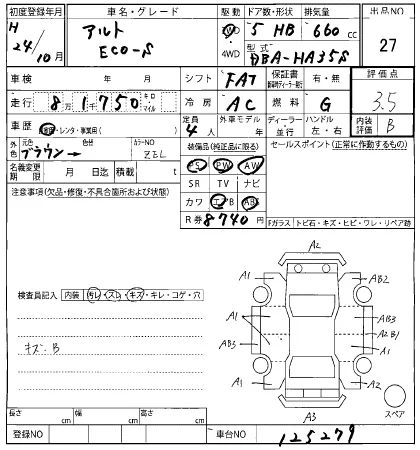 初度登録年月 車名・グレード 駆動 ドア数・形状 排気量 出品NO
H 24/10月 アルト ECO-S 2WD 4WD 5 HB 660 cc 27
型式 DBA-HA35S
車検 年 月 シフト FAT 保証書 有・無 評価点
走行 8万1750 キロ・マイル 冷房 AC 燃料 G 3.5
車歴 自家用・レンタ・事業用( ) 定員 4人 外車モデル 年 ディーラー・並行 ハンドル 左・右 内装評価 B
外色 元色 ブラウン → 色替 カラーNO ZBL 装備品(純正品に限る) セールスポイント(正常に作動するもの)
名義変更期限 月 日迄 積載 t PS PW AW
注意事項(欠品・修復・不具合箇所および状態) SR TV ナビ
カワ エアB ABS
R券 8740円 Fガラス トビ石・キズ・ヒビ・ワレ・リペア跡
A2
A1 AB2
検査員記入 内装 汚レ・スレ・キズ・キレ・コゲ・穴
A1 AB3
A2 B1
キズ・B AB3 A1
A1 A2
A3 スペア
長さ cm 幅 cm 高さ cm
登録NO 車台NO 125279